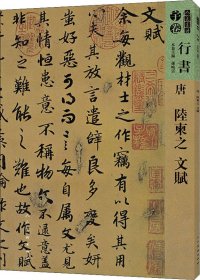 行書
唐
陸柬之 文賦
文賦
余每觀材士之作竊有以得其用
心夫其放言遣辭良多變矣妍
蚩好惡可得而言每自屬文尤見
其情恒患意不稱物文不逮意蓋
非知之難能之難也故作文賦